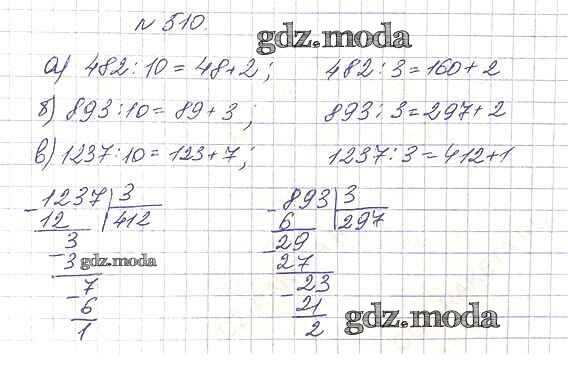 № 510.
gdz.moda
а) 482 : 10 = 48 + 2 ; 482 : 3 = 160 + 2
б) 893 : 10 = 89 + 3 ; 893 : 3 = 297 + 2
в) 1237 : 10 = 123 + 7 ; 1237 : 3 = 412 + 1
- 1237 | 3 - 893 | 3
12 | 412 6 | 297
3 - 29
- 3 27
gdz.moda
- 7 - 23
6 21
1 2
gdz.moda